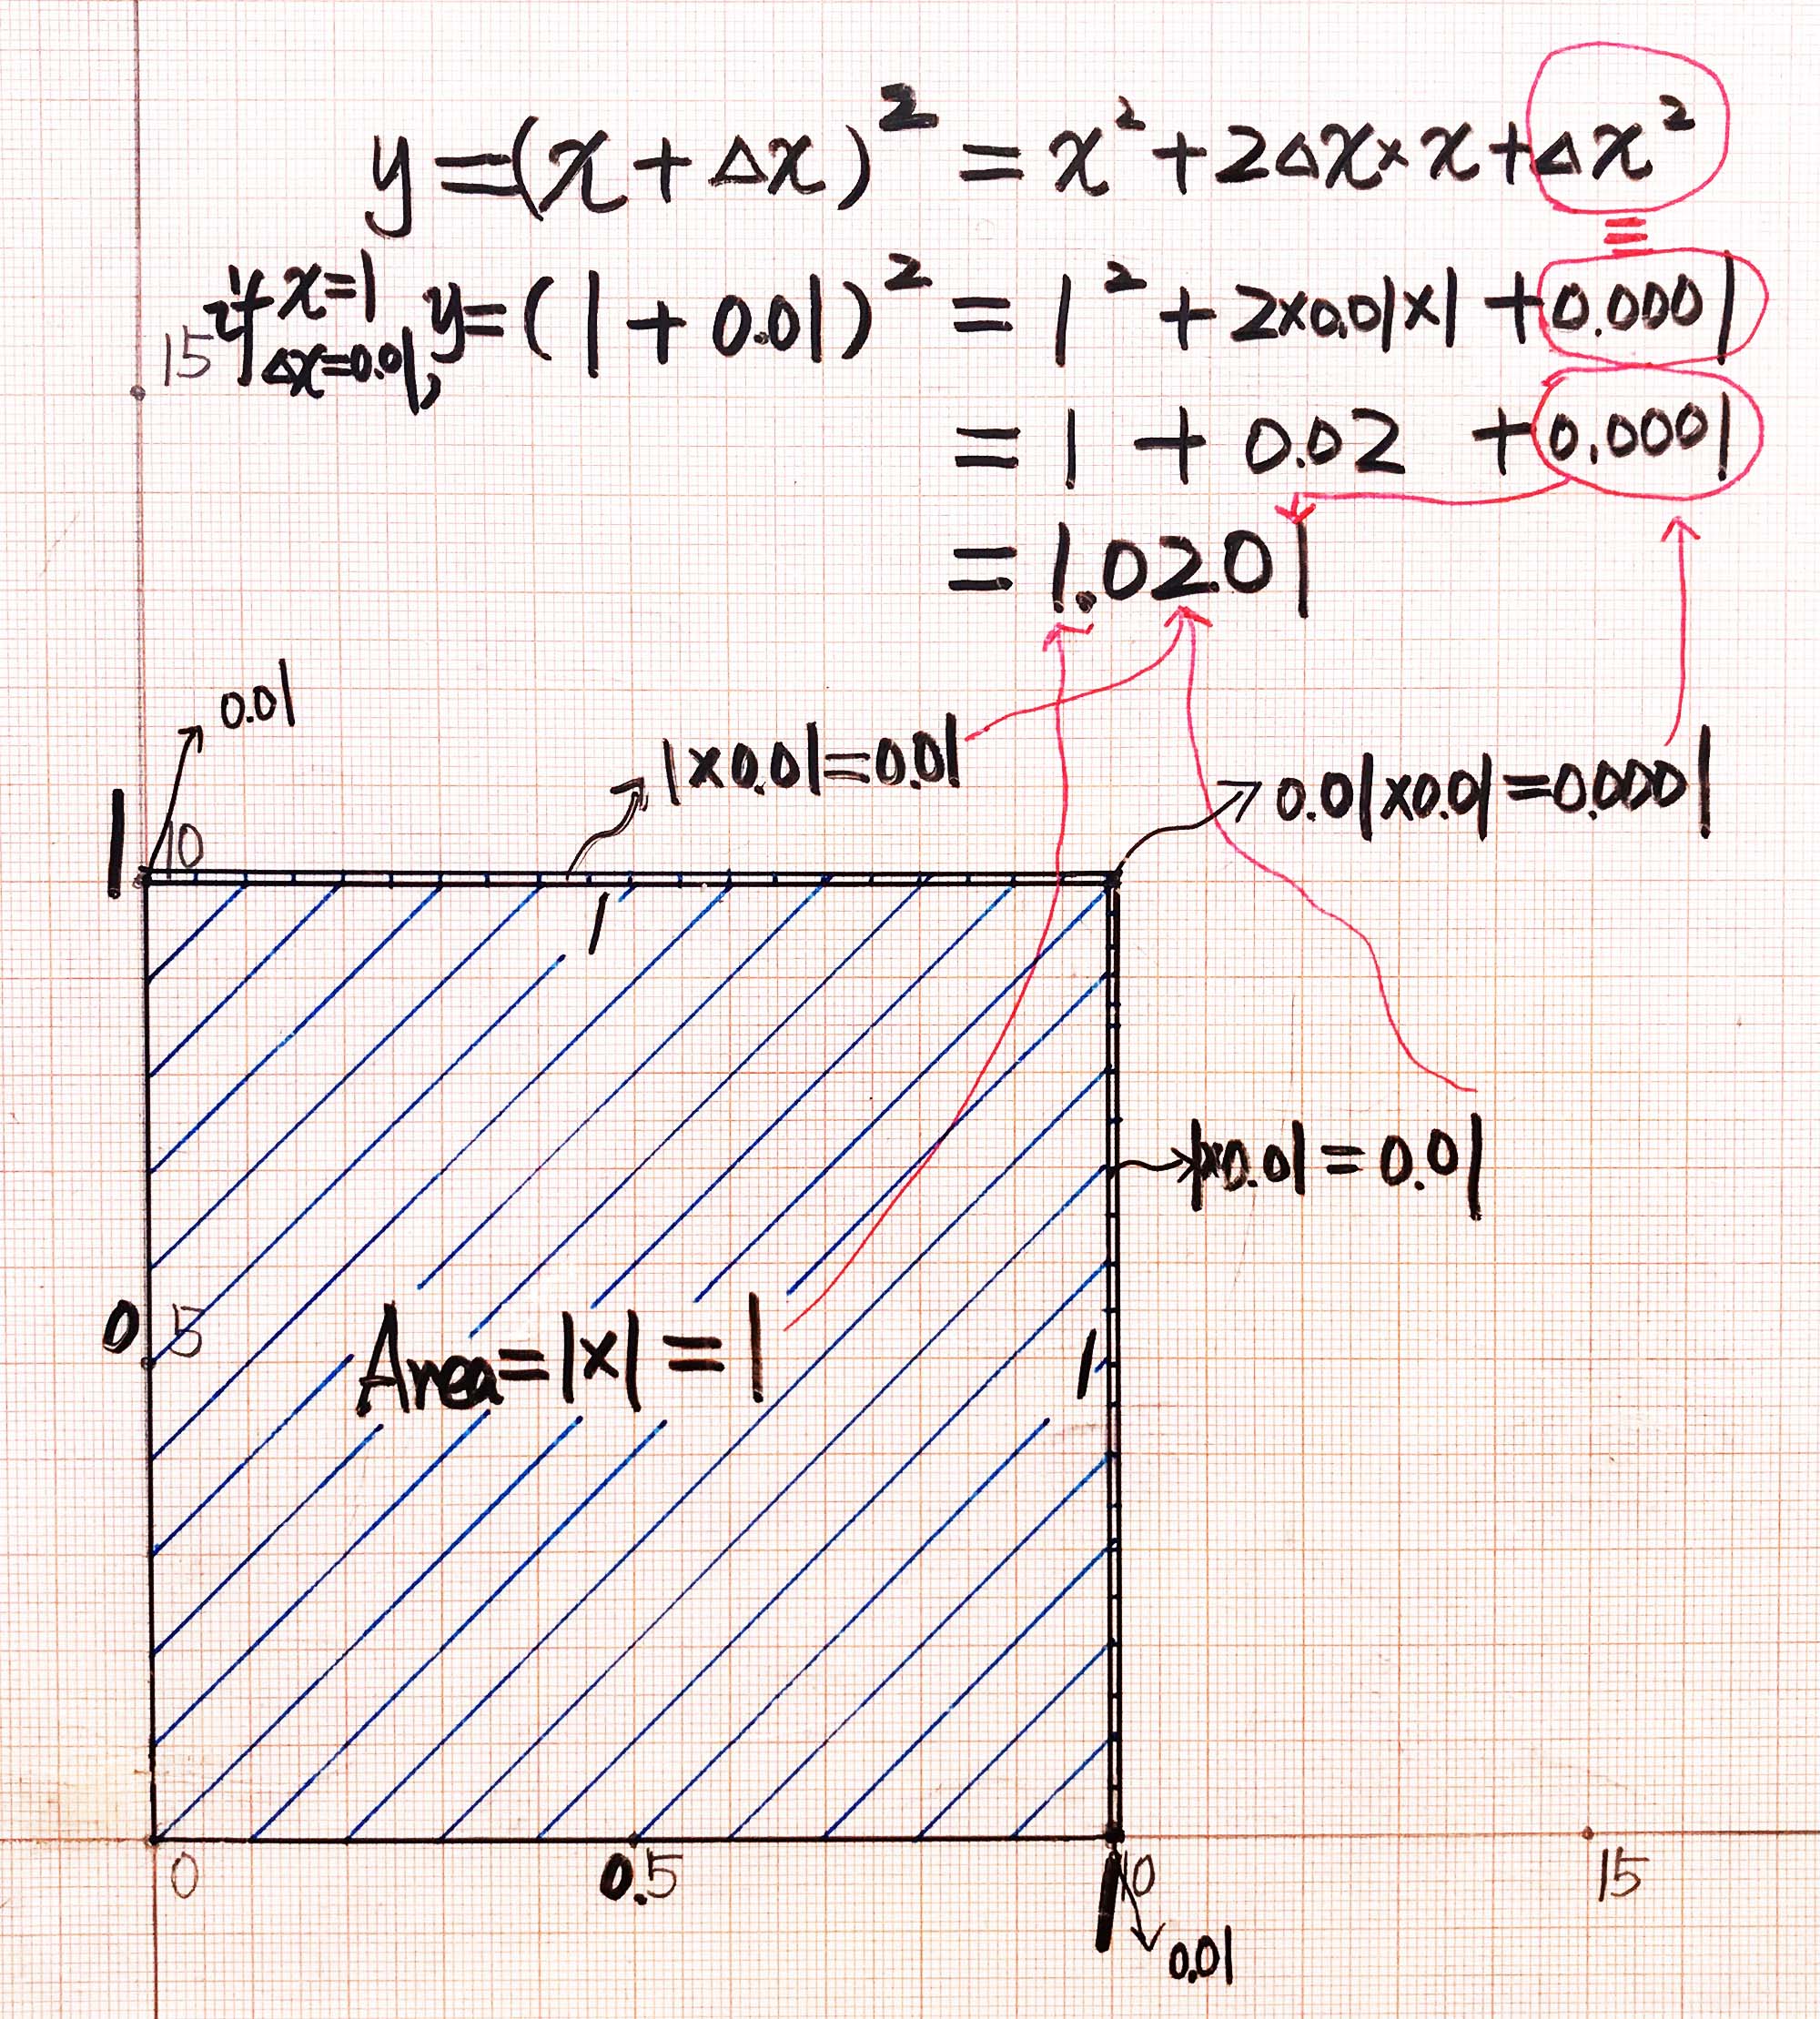 y=(x+Δx)²=x²+2Δx×x+Δx²
=
if x=1
Δx=0.01, y=(1+0.01)²=1²+2×0.01×1+0.0001
15
=1+0.02+0.0001
=1.0201
0.01
1×0.01=0.01
0.01×0.01=0.0001
1
10
1
1×0.01=0.01
0 5
Area=1×1=1
1
0
0.5
1
10
15
0.01